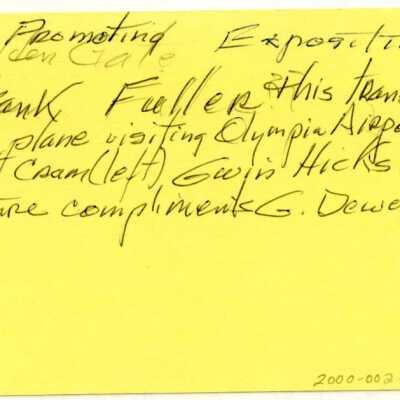 Promoting Expositi
den Gate
ank Fuller & this trans
plane visiting Olympia Airpo
Cram (left) Gwin Hicks
ure compliments G. Dewe
2000-002-